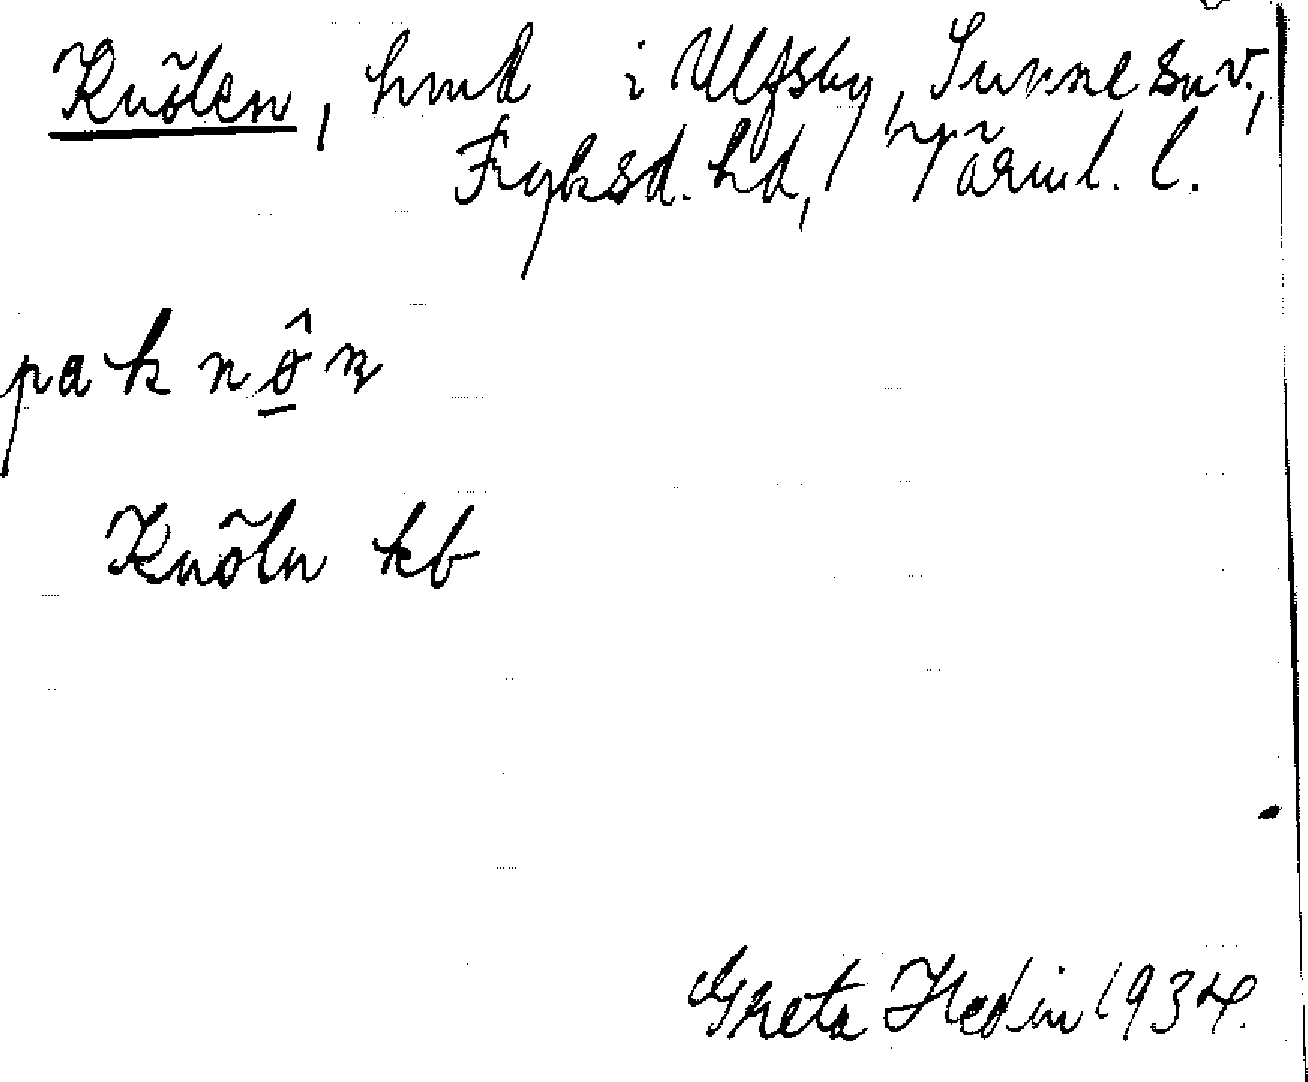 Knölen, hmd i Ulfsby, Sunne sn v.,
Fryksd. hd, Värml. l.
pa k n ö̂ n
Knöln kb
Greta Hedin 1934.